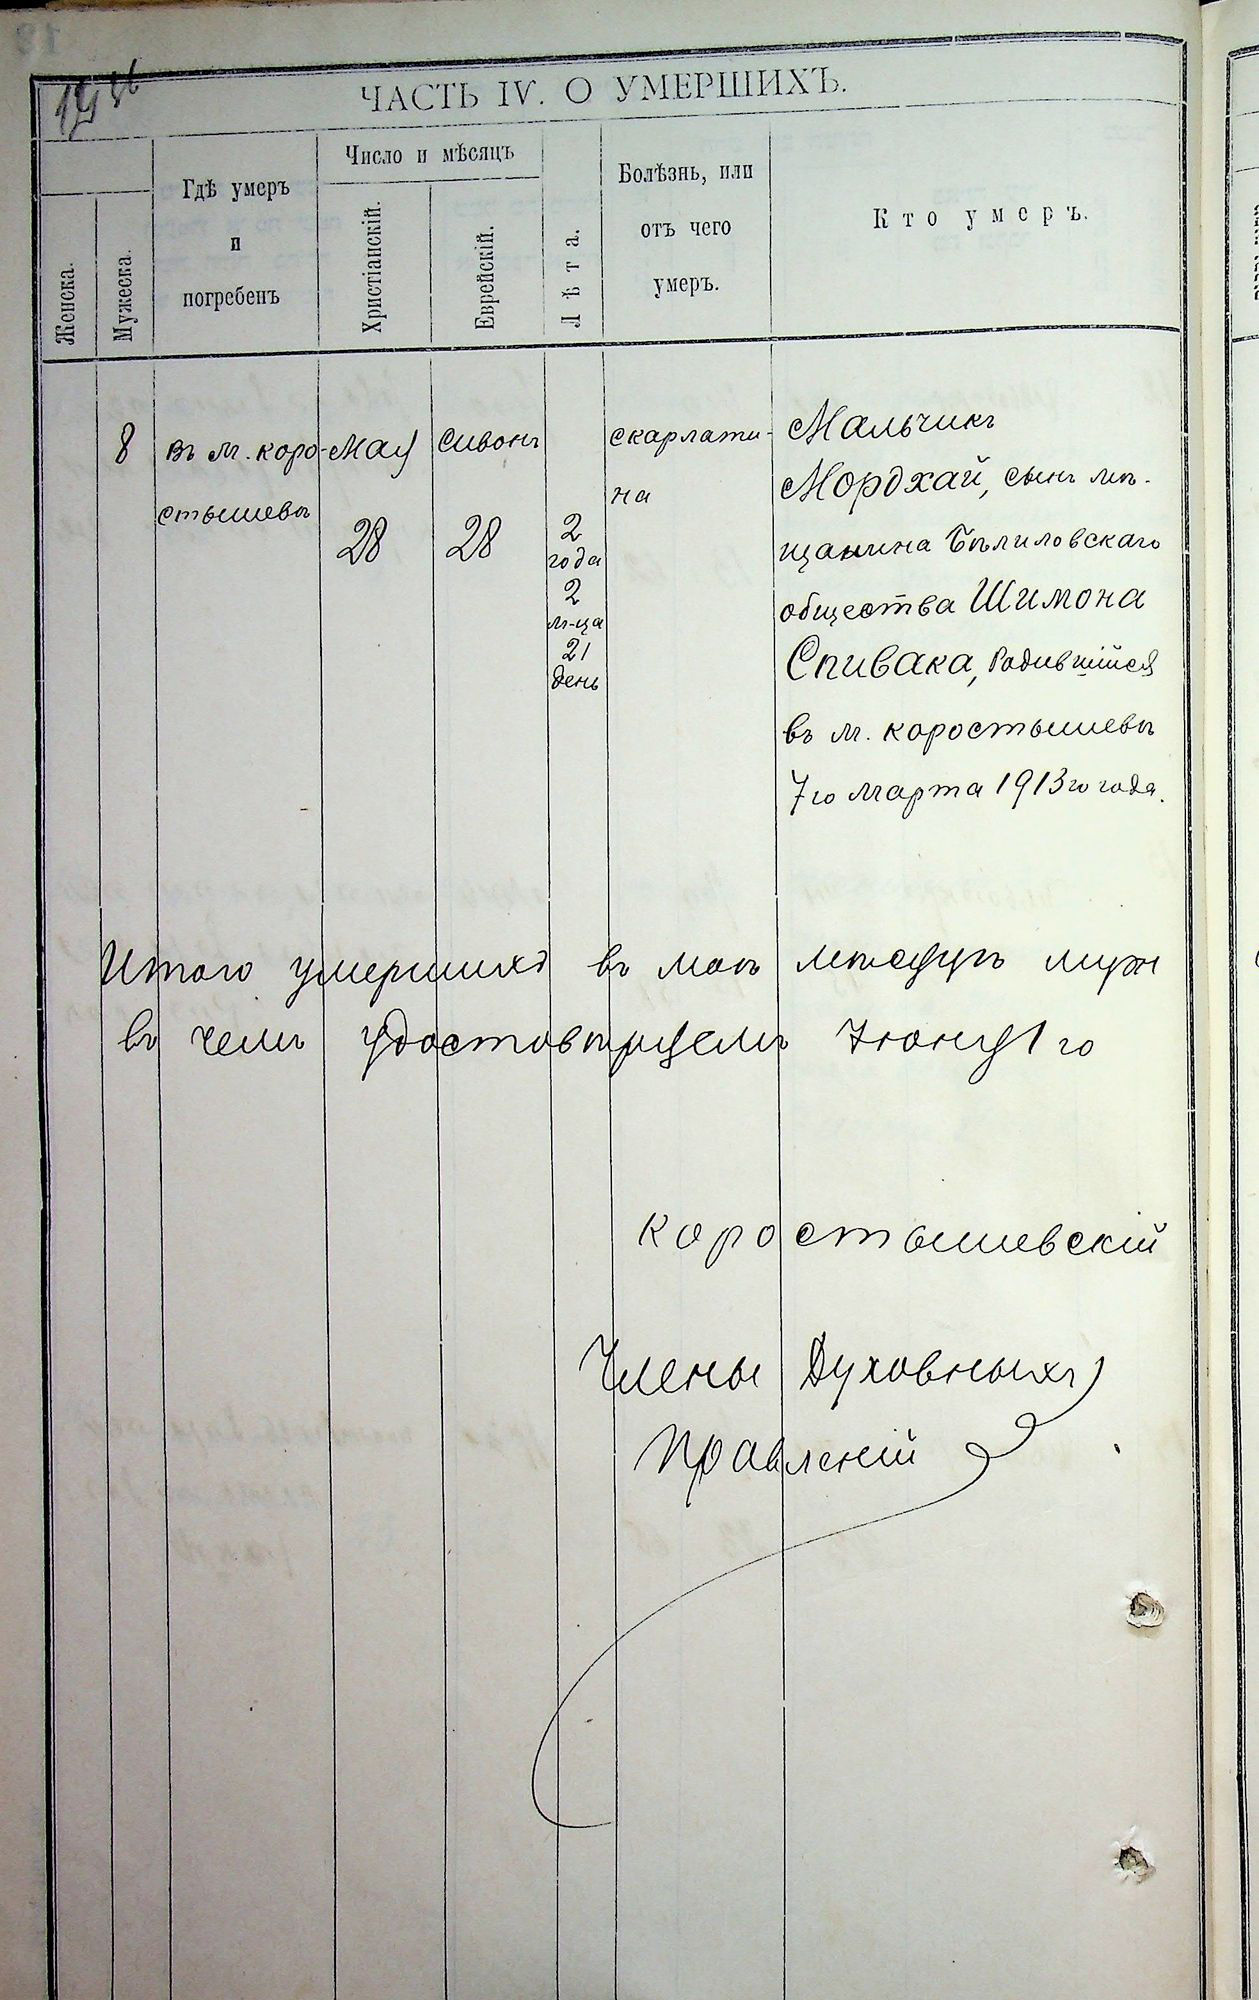 ЧАСТЬ IV. О УМЕРШИХЪ.
Женска.
Мужеска.
Гдѣ умеръ
и
погребенъ
Число и мѣсяцъ
Христіанскій.
Еврейскій.
Лѣта.
Болѣзнь, или
отъ чего
умеръ.
Кто умеръ.
8
въ м. Коро-
стышевѣ
Мая
28
Сивонъ
28
2
года
2
м-ца
21
день
скарлати-
на
Мальчикъ
Мордхай, сынъ мѣ-
щанина Бѣлиловскаго
общества Шимона
Спивака, Родившійся
въ м. Коростышевѣ
7го Марта 1913го года.
Итого умершихъ въ маѣ мѣсяцѣ муж
въ чемъ удостовѣряемъ Іюня 1го
Коростышевскій
Члены Духовныхъ
Правленій